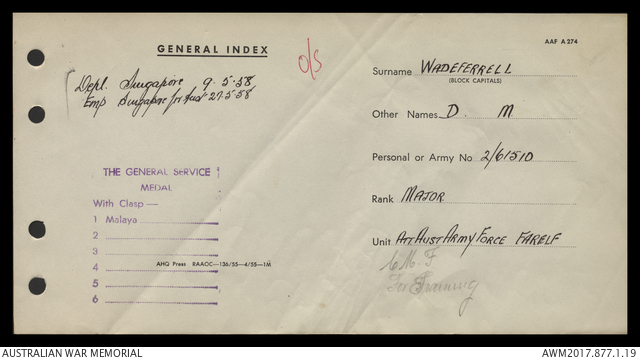 GENERAL INDEX
O/S
AAF A274
Depl. Singapore 9.5.58
Emp Singapore for Aust 27.5.58
Surname WADEFERRELL
(BLOCK CAPITALS)
Other Names D. M
Personal or Army No 2/61510
Rank MAJOR
Unit ATT AUST ARMY FORCE FARELF
C.M.F
For Training
THE GENERAL SERVICE
MEDAL
With Clasp —
1 Malaya
2
3
4
5
6
AHQ Press RAAOC—136/55—4/55—1M
AUSTRALIAN WAR MEMORIAL
AWM2017.877.1.19